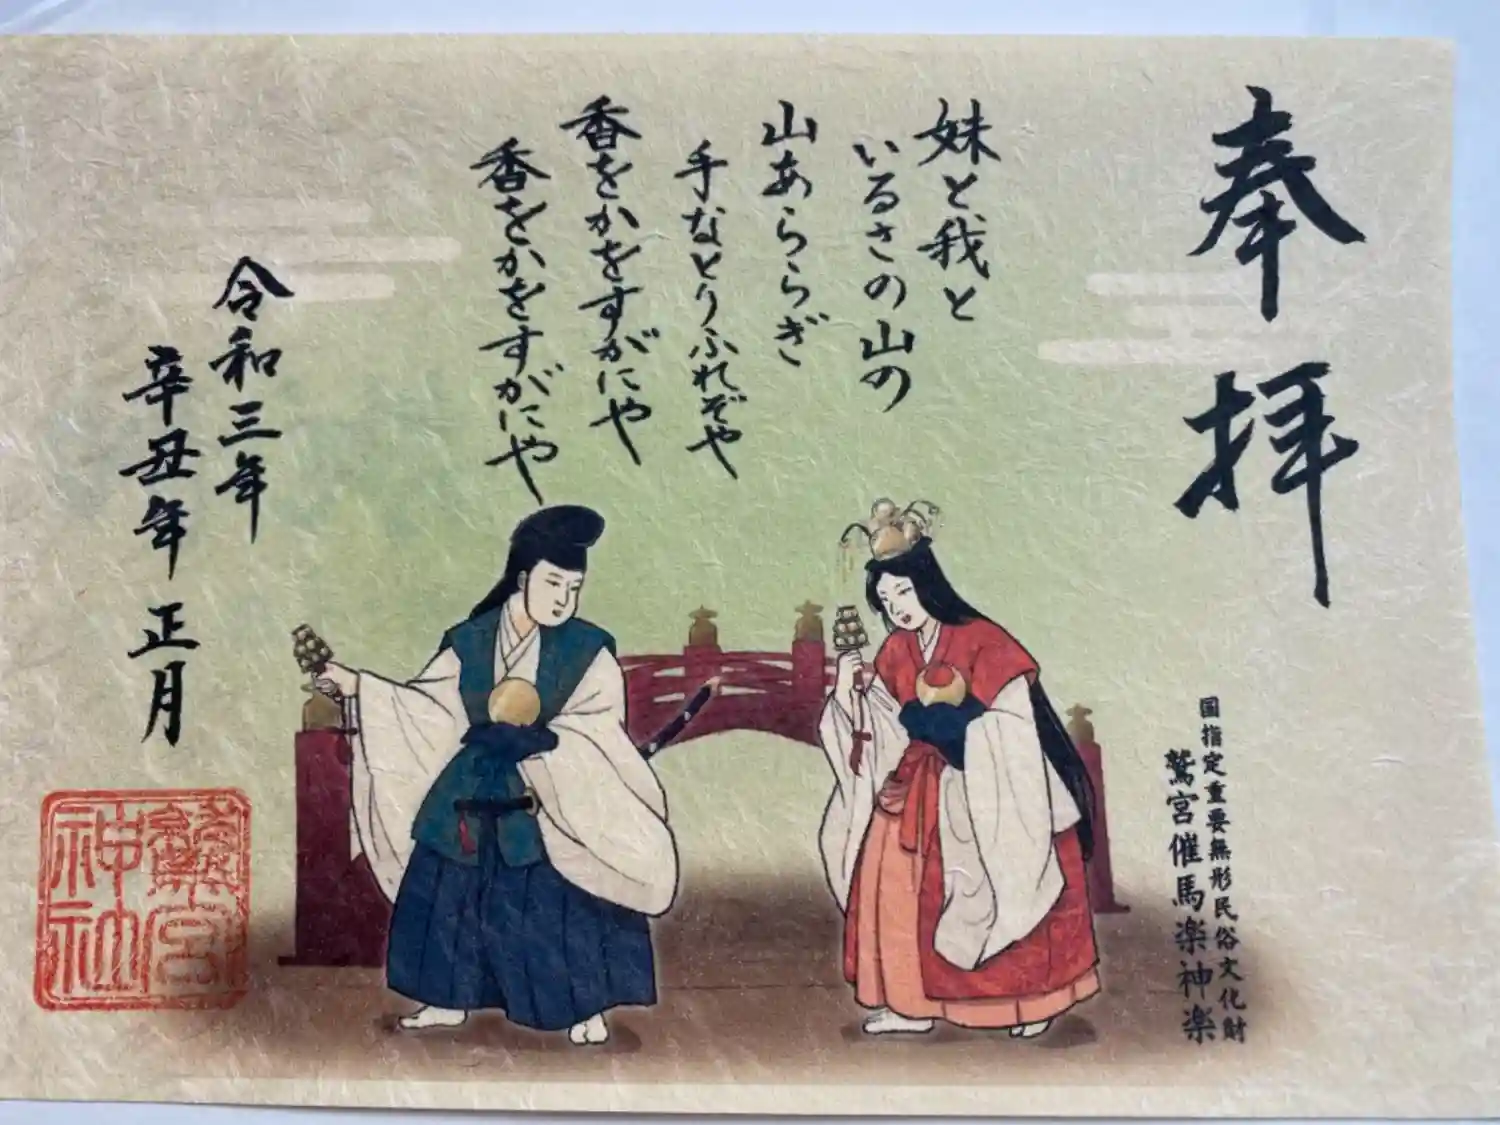 奉拝
国指定重要無形民俗文化財
鷲宮催馬楽神楽
妹と我と
いるさの山の
山あららぎ
手なとりふれぞや
香をかをすがにや
香をかをすがにや
令和三年
辛丑年 正月
鷲宮
神社